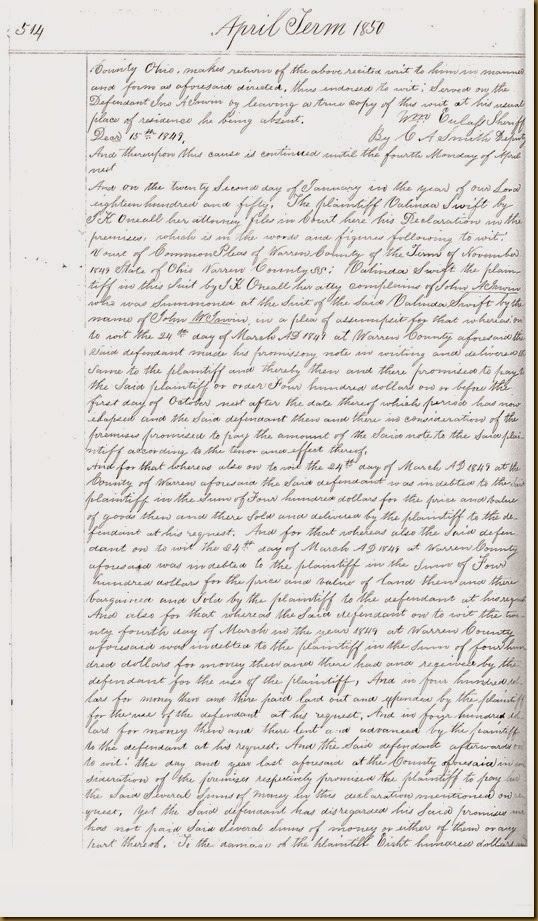 514
April Term 1850
County Ohio, makes return of the above recited writ to him in manner
and form as aforesaid directed, thus endorsed to wit; Served on the
Defendant Jno Irwin by leaving a true copy of this writ at his usual
place of residence he being absent. Wm Eulass Sheriff
Decr 15th 1849. By C A Smith Deputy
And thereupon this cause is continued until the fourth Monday of April
next
And on the twenty Second day of January in the year of our Lord
eighteen hundred and fifty, The plaintiff Valinda Swift by
J K Oneall her attorney files in Court here his Declaration in the
premises; which is in the words and figures following to wit.
Court of Common Pleas of Warren County of the Term of November
1849 State of Ohio Warren County SS; Valinda Swift the plain-
tiff in this Suit by J K Oneall her atty complains of John Irwin
who was Summoned at the Suit of the Said Valinda Swift by the
name of John W Irwin, in a plea of assumpsit for that whereas on
to wit the 24th day of March AD 1849 at Warren County aforesaid the
Said defendant made his promissory note in writing and delivered the
Same to the plaintiff and thereby then and there promised to pay to
the Said plaintiff or order Four hundred dollars on or before the
first day of October next after the date thereof which period has now
elapsed and the Said defendant then and there in consideration of the
premises promised to pay the amount of the Said note to the Said plai-
ntiff according to the tenor and effect thereof.
And for that whereas also on to wit the 24th day of March AD 1849 at the
County of Warren aforesaid the Said defendant was indebted to the Said
plaintiff in the Sum of Four hundred dollars for the price and value
of goods then and there Sold and delivered by the plaintiff to the de-
fendant at his request. And for that whereas also the Said defen-
dant on to wit the 24th day of March AD 1849 at Warren County
aforesaid was indebted to the plaintiff in the Sum of Four
hundred dollars for the price and value of land then and there
bargained and Sold by the plaintiff to the defendant at his request
And also for that whereas the Said defendant on to wit the twe-
nty fourth day of March in the year 1849 at Warren County
aforesaid was indebted to the plaintiff in the Sum of four hun
dred dollars for money then and there had and received by the
defendant for the use of the plaintiff, And in four hundred dol-
lars for money then and there paid laid out and expended by the plaintiff
for the use of the defendant at his request. And in four hundred dol-
lars for money then and there lent and advanced by the plaintiff
to the defendant at his request. And the Said defendant afterwards on
to wit; the day and year last aforesaid at the County aforesaid in con
sideration of the premises respectively promised the plaintiff to pay her
the Said Several Sums of money in this declaration mentioned on re
quest. Yet the Said defendant has disregarded his Said promises and
has not paid Said Several Sums of money or either of them or any
part thereof. To the damage of the plaintiff Eight hundred dollars